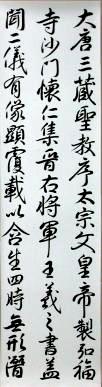 大唐三藏聖教序太宗文皇帝製弘福
寺沙门懷仁集晉右將軍王羲之書盖
聞二儀有像顯覆載以含生四時無形潛